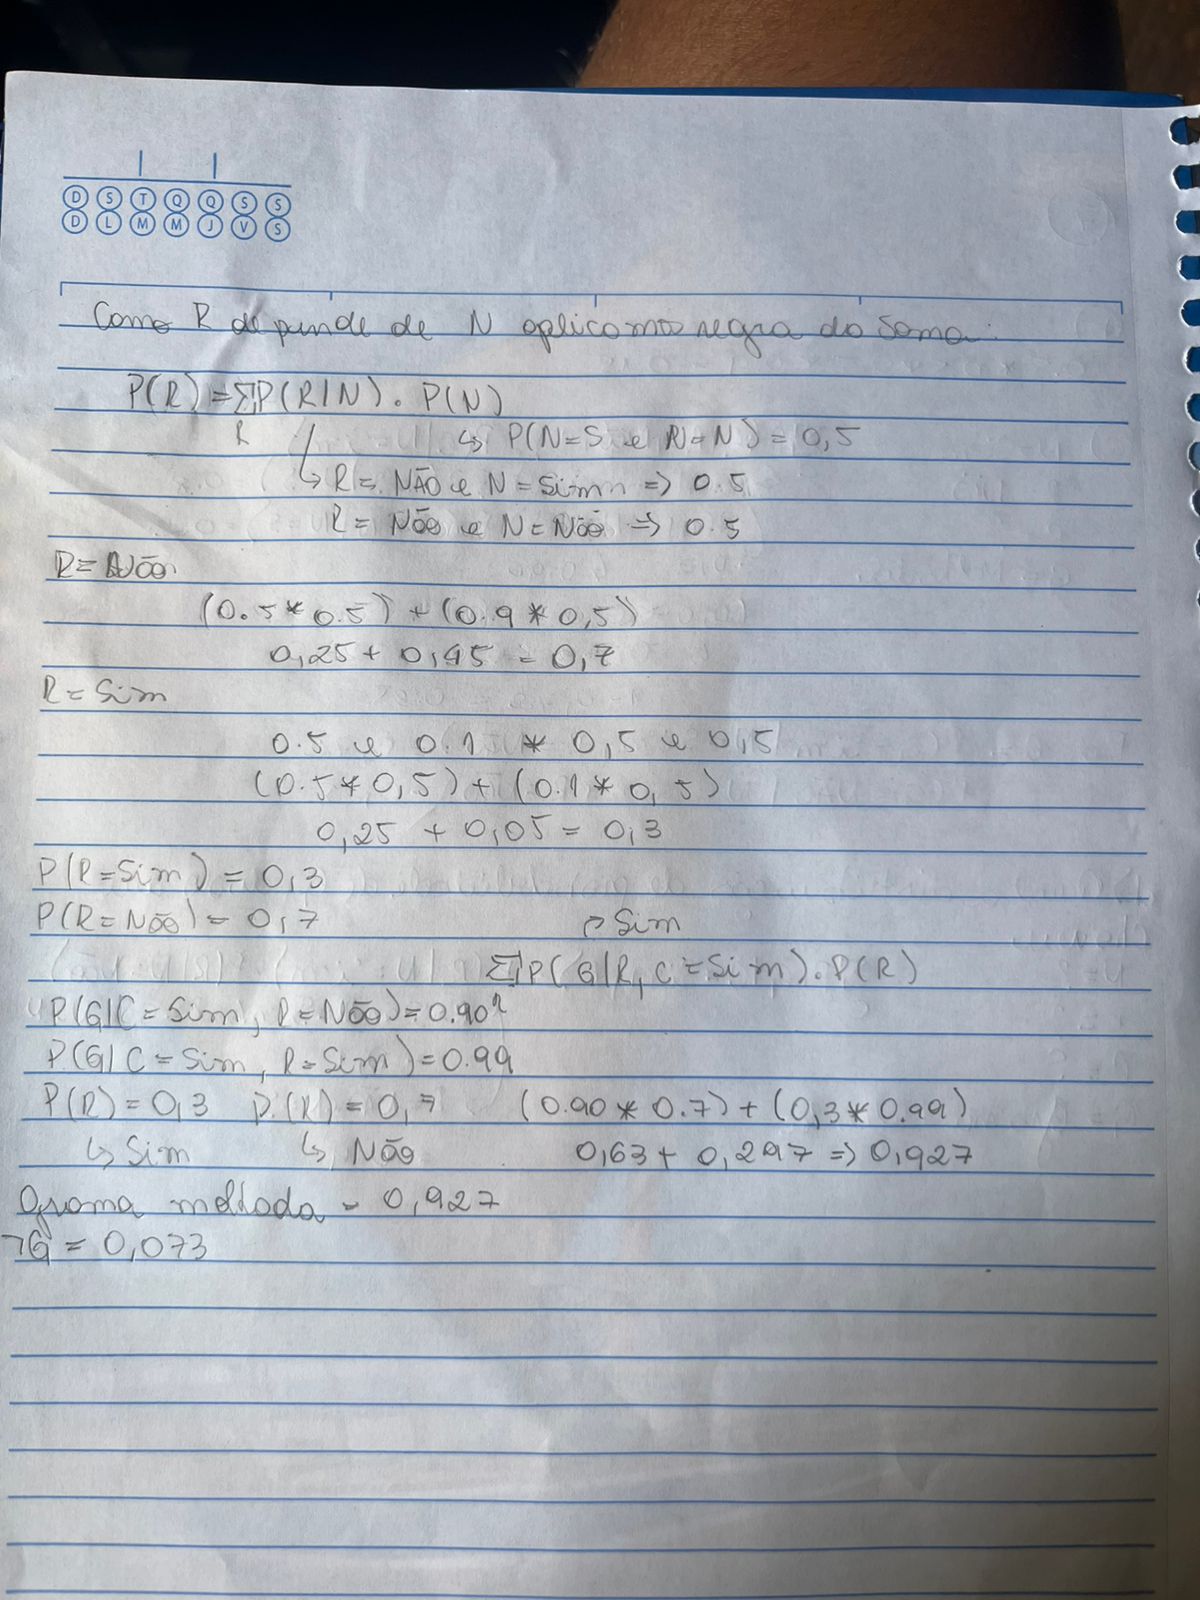 D S T Q Q S S
D L M M J V S
Como R depende de N aplicamos regra da Soma.
P(R) = Σ P(R|N) . P(N)
R
↳ P(N=S e N=N) = 0,5
↳ R = NÃO e N = Sim => 0.5
R = Não e N = Não => 0.5
R = Não
(0.5 * 0.5) + (0.9 * 0,5)
0,25 + 0,45 = 0,7
R = Sim
0.5 e 0.1 * 0,5 e 0,5
(0.5 * 0,5) + (0.1 * 0,5)
0,25 + 0,05 = 0,3
P(R=Sim) = 0,3
P(R=Não) = 0,7
↱ Sim
Σ P(G|R, C=Sim) . P(R)
P(G|C=Sim, R=Não) = 0.90
P(G|C=Sim, R=Sim) = 0.99
P(R) = 0,3 P(R) = 0,7 (0.90 * 0.7) + (0,3 * 0.99)
↳ Sim ↳ Não 0,63 + 0,297 => 0,927
Grama molhada = 0,927
¬G = 0,073